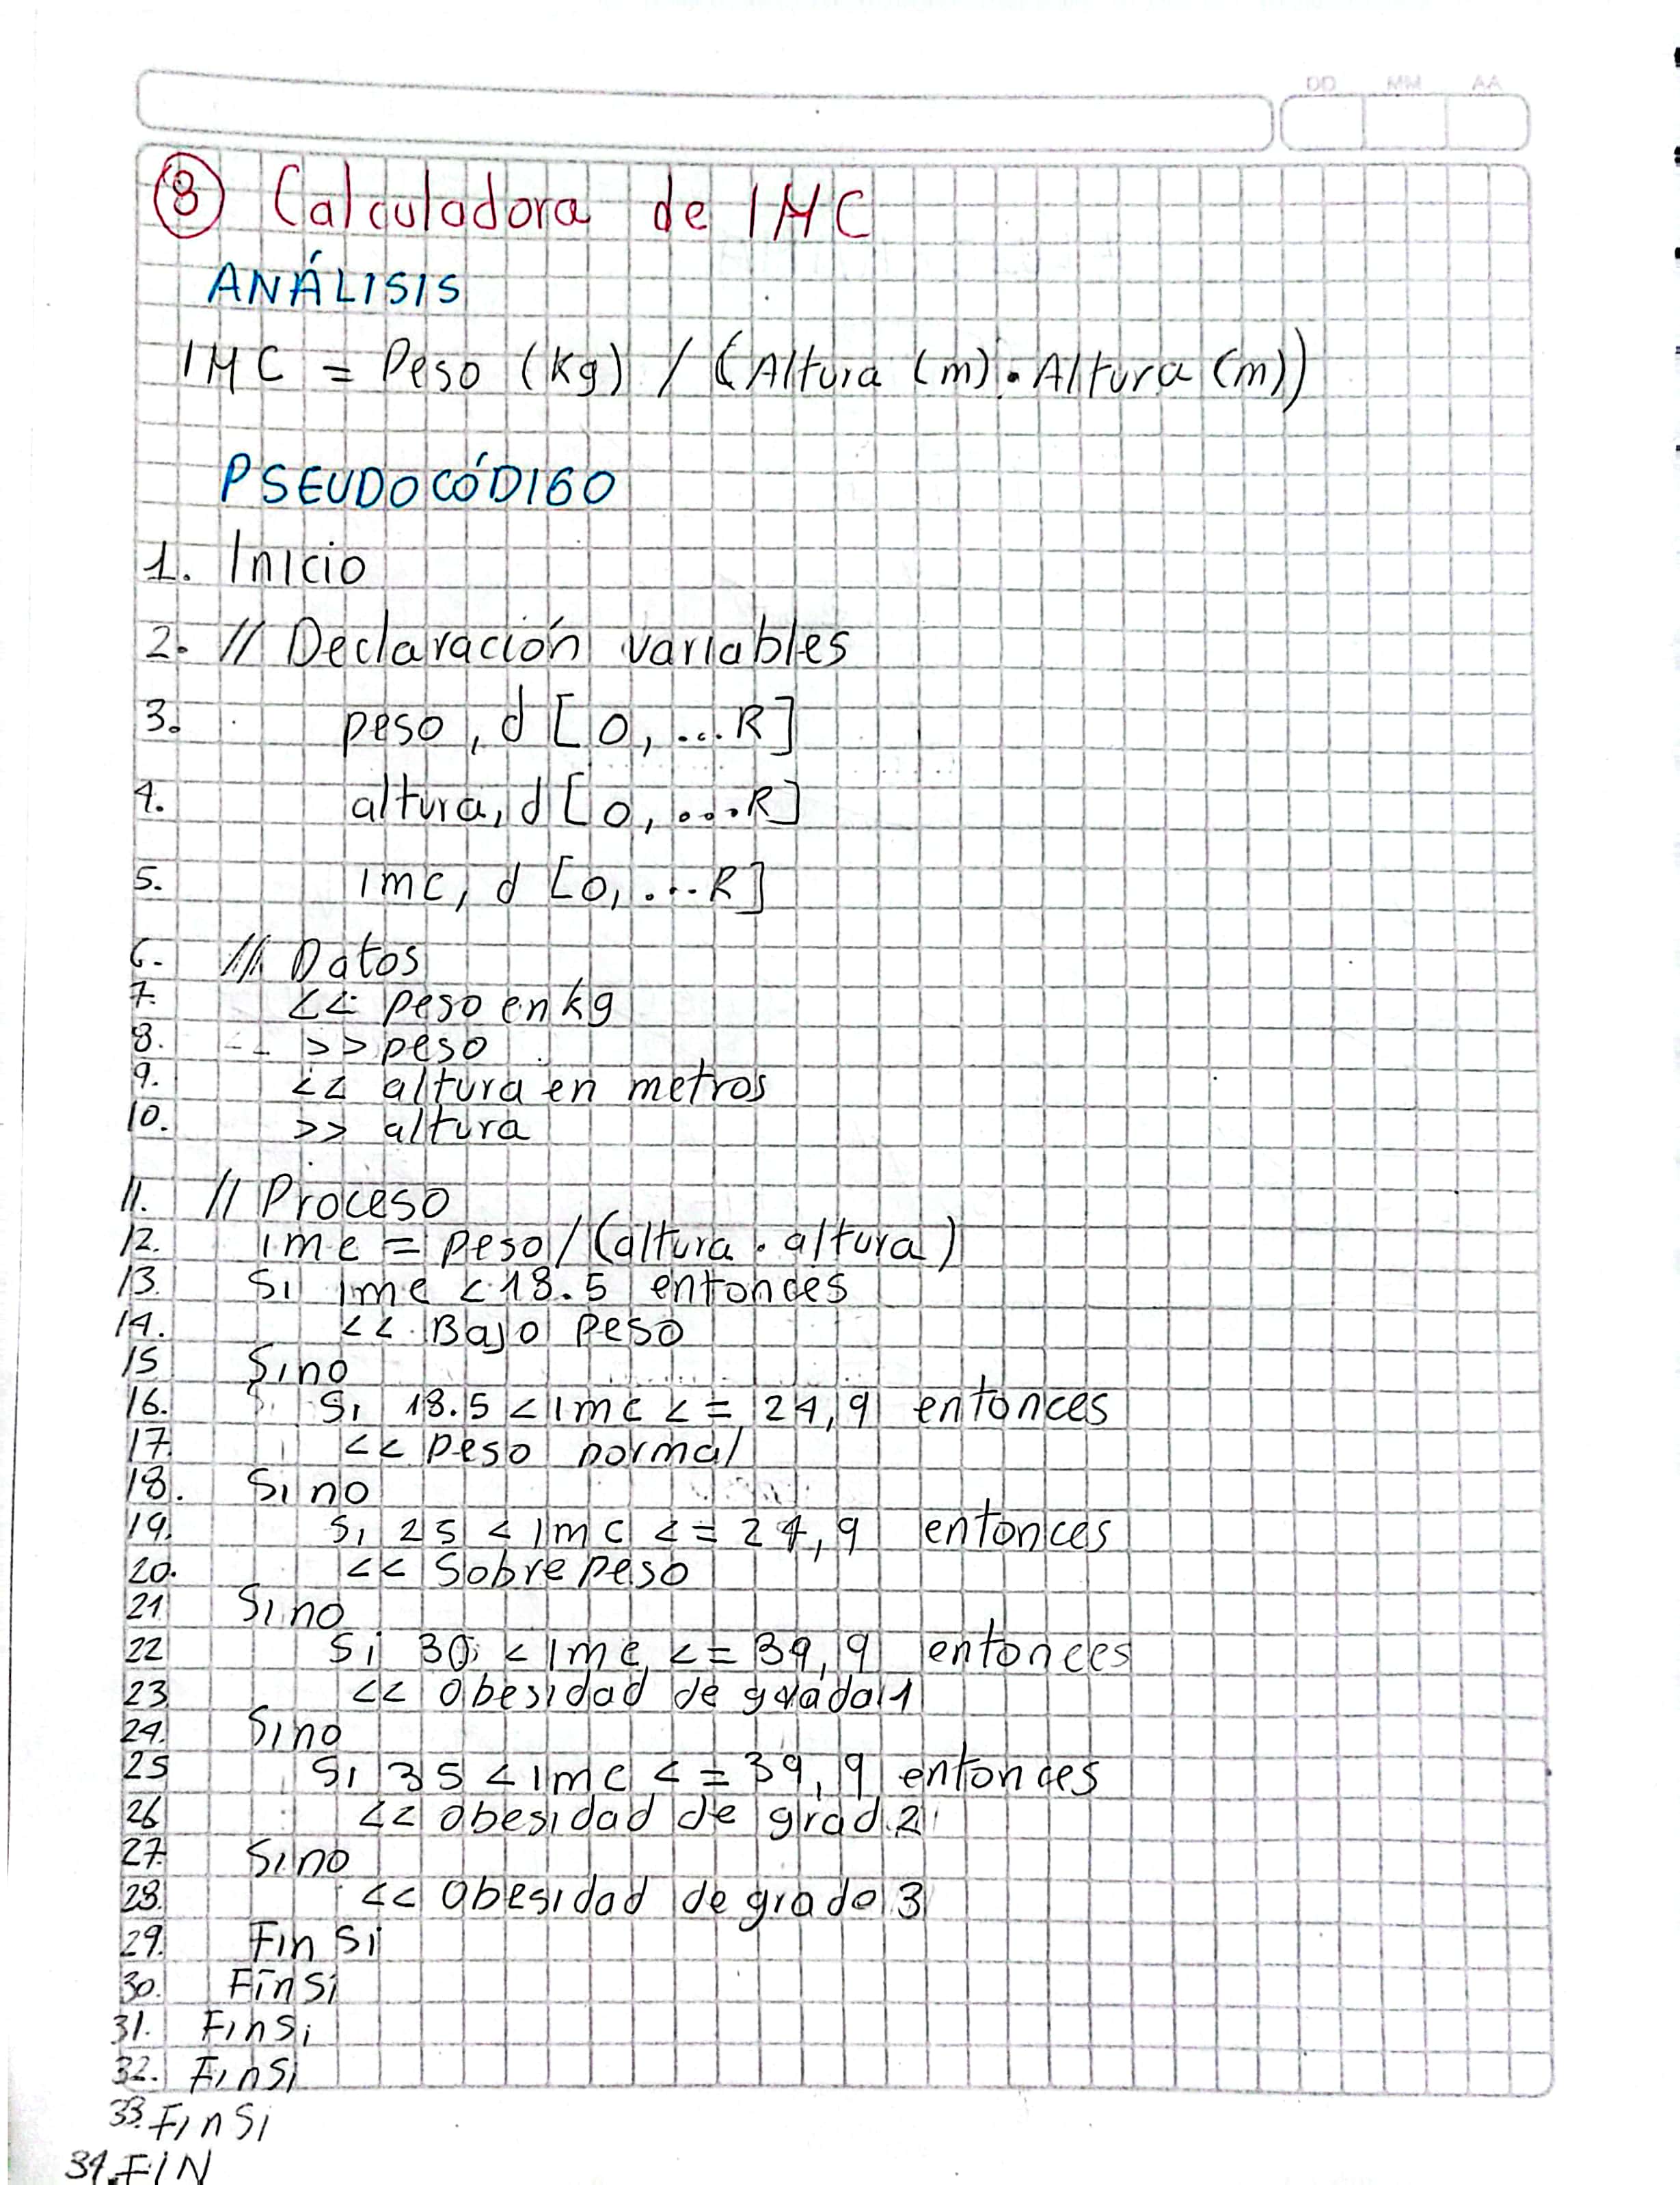 DD MM AA
8 Calculadora de IMC
ANÁLISIS
IMC = Peso (Kg) / (Altura (m) • Altura (m))
PSEUDOCÓDIGO
1. Inicio
2. // Declaración variables
3. peso, d [0, ...R]
4. altura, d [0, ...R]
5. imc, d [0, ...R]
6. // Datos
7. << peso en kg
8. >> peso
9. << altura en metros
10. >> altura
11. // Proceso
12. imc = peso / (altura • altura)
13. Si imc < 18.5 entonces
14. << Bajo peso
15 Sino
16. Si 18.5 < imc <= 24,9 entonces
17. << peso normal
18. Sino
19. Si 25 < imc <= 24,9 entonces
20. << Sobrepeso
21 Sino
22 Si 30 < imc <= 39,9 entonces
23 << Obesidad de grado 1
24. Sino
25 Si 35 < imc <= 39,9 entonces
26 << Obesidad de grad 2
27. Sino
28. << Obesidad de grado 3
29. Fin Si
30. FinSi
31. FinSi
32. FinSi
33. FinSi
34. FIN